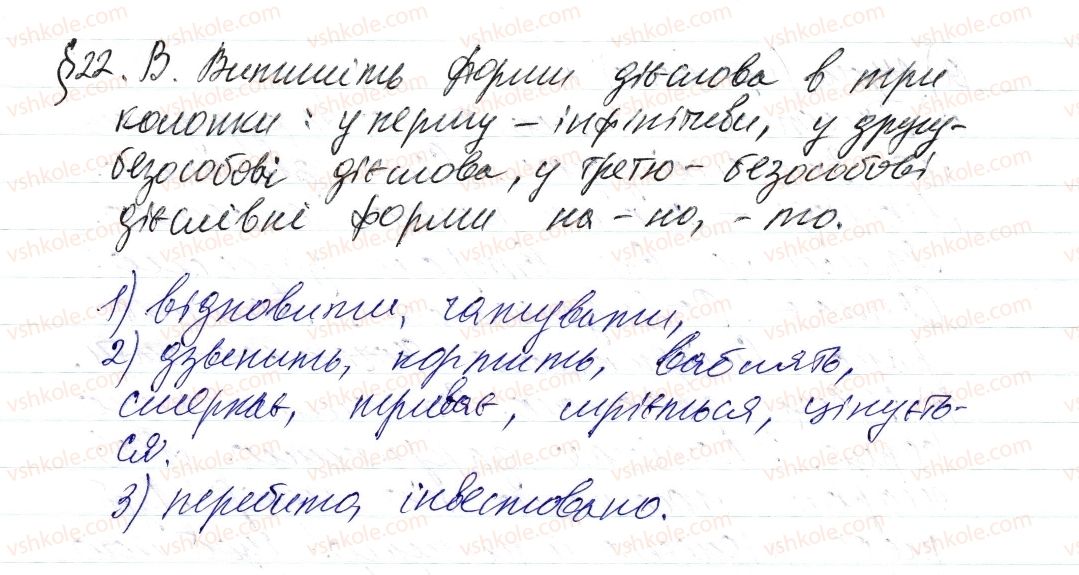 §22. В. Випишіть форми дієслова в три
колонки: у першу – інфінітиви, у другу-
безособові дієслова, у третю – безособові
дієслівні форми на -но, -то.
1) відновити, чатувати,
2) дзвенить, кортить, ваблять,
смеркає, триває, мріється, цінуєть-
ся.
3) перебито, інвестовано.